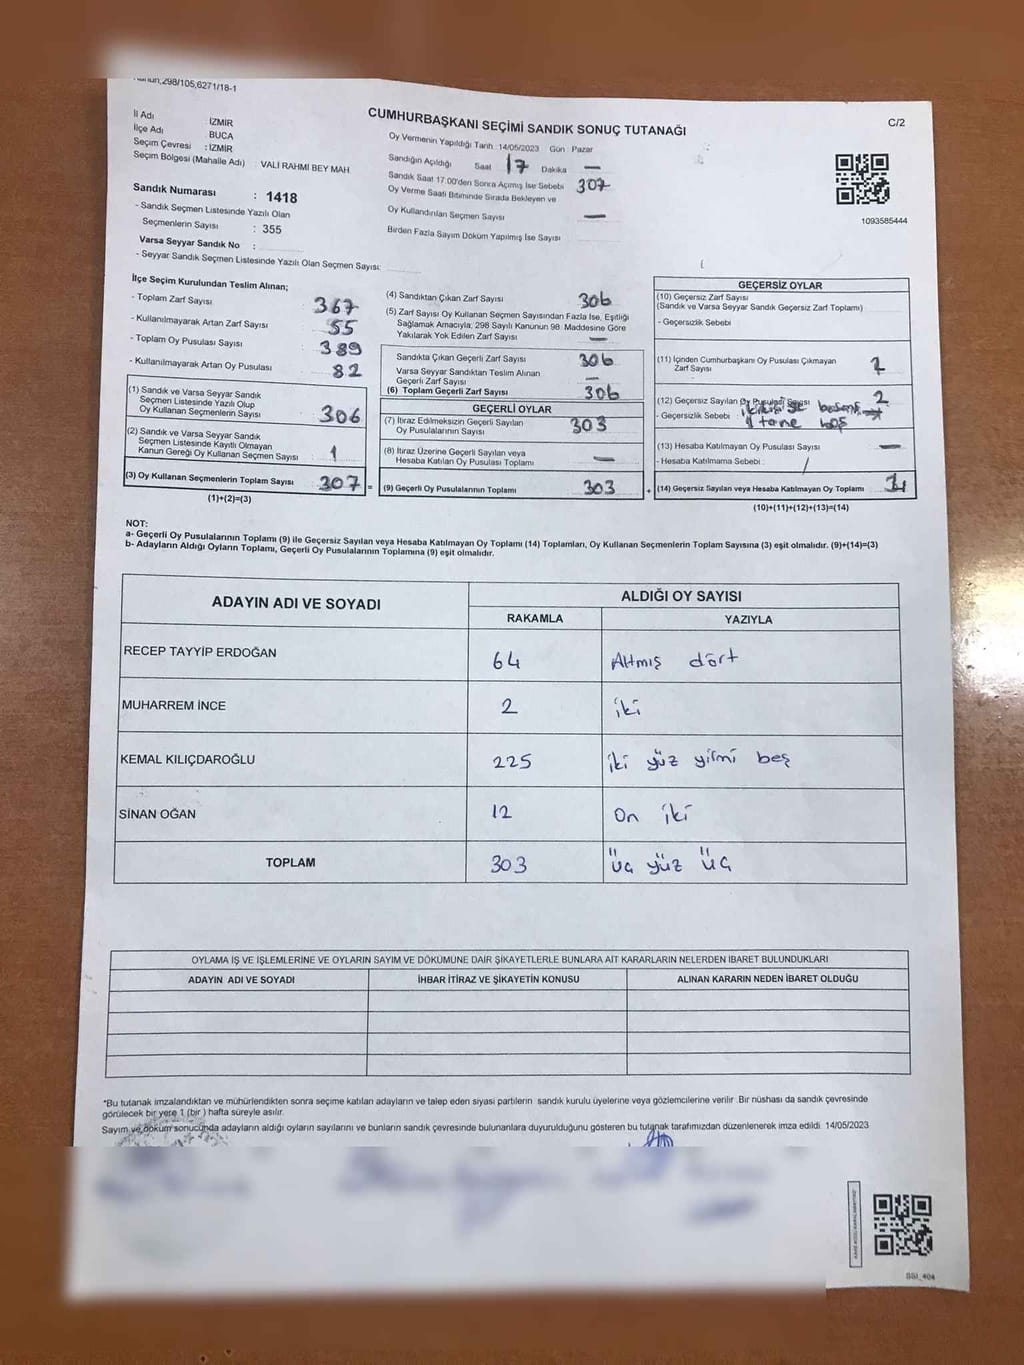 298/105,6271/18-1
CUMHURBAŞKANI SEÇİMİ SANDIK SONUÇ TUTANAĞI
C/2
İl Adı : İZMİR
İlçe Adı : BUCA
Seçim Çevresi : İZMİR
Seçim Bölgesi (Mahalle Adı) : VALİ RAHMİ BEY MAH.
Sandık Numarası : 1418
- Sandık Seçmen Listesinde Yazılı Olan
Seçmenlerin Sayısı : 355
Varsa Seyyar Sandık No :
- Seyyar Sandık Seçmen Listesinde Yazılı Olan Seçmen Sayısı:
Oy Vermenin Yapıldığı Tarih : 14/05/2023 Gün : Pazar
Sandığın Açıldığı Saat 17 Dakika —
Sandık Saat 17.00'den Sonra Açımış İse Sebebi 307
Oy Verme Saati Bitiminde Sırada Bekleyen ve
Oy Kullandırılan Seçmen Sayısı —
Birden Fazla Sayım Döküm Yapılmış İse Sayısı
1093585444
İlçe Seçim Kurulundan Teslim Alınan;
- Toplam Zarf Sayısı 367
- Kullanılmayarak Artan Zarf Sayısı 55
- Toplam Oy Pusulası Sayısı 389
- Kullanılmayarak Artan Oy Pusulası 82
(1) Sandık ve Varsa Seyyar Sandık
Seçmen Listesinde Yazılı Olup
Oy Kullanan Seçmenlerin Sayısı 306
(2) Sandık ve Varsa Seyyar Sandık
Seçmen Listesinde Kayıtlı Olmayan
Kanun Gereği Oy Kullanan Seçmen Sayısı 1
(3) Oy Kullanan Seçmenlerin Toplam Sayısı 307 =
(1)+(2)=(3)
(4) Sandıktan Çıkan Zarf Sayısı 306
(5) Zarf Sayısı Oy Kullanan Seçmen Sayısından Fazla İse, Eşitliği
Sağlamak Amacıyla; 298 Sayılı Kanunun 98. Maddesine Göre
Yakılarak Yok Edilen Zarf Sayısı —
Sandıkta Çıkan Geçerli Zarf Sayısı 306
Varsa Seyyar Sandıktan Teslim Alınan
Geçerli Zarf Sayısı —
(6) Toplam Geçerli Zarf Sayısı 306
GEÇERLİ OYLAR
(7) İtiraz Edilmeksizin Geçerli Sayılan
Oy Pusulalarının Sayısı 303
(8) İtiraz Üzerine Geçerli Sayılan veya
Hesaba Katılan Oy Pusulası Toplamı —
(9) Geçerli Oy Pusulalarının Toplamı 303 +
GEÇERSİZ OYLAR
(10) Geçersiz Zarf Sayısı
(Sandık ve Varsa Seyyar Sandık Geçersiz Zarf Toplamı)
- Geçersizlik Sebebi
(11) İçinden Cumhurbaşkanı Oy Pusulası Çıkmayan
Zarf Sayısı
(12) Geçersiz Sayılan Oy Pusulası Sayısı 2
- Geçersizlik Sebebi :
1 tane boş
(13) Hesaba Katılmayan Oy Pusulası Sayısı —
- Hesaba Katılmama Sebebi : /
(14) Geçersiz Sayılan veya Hesaba Katılmayan Oy Toplamı
(10)+(11)+(12)+(13)=(14)
NOT:
a- Geçerli Oy Pusulalarının Toplamı (9) ile Geçersiz Sayılan veya Hesaba Katılmayan Oy Toplamı (14) Toplamları, Oy Kullanan Seçmenlerin Toplam Sayısına (3) eşit olmalıdır. (9)+(14)=(3)
b- Adayların Aldığı Oyların Toplamı, Geçerli Oy Pusulalarının Toplamına (9) eşit olmalıdır.
ADAYIN ADI VE SOYADI ALDIĞI OY SAYISI
RAKAMLA YAZIYLA
RECEP TAYYİP ERDOĞAN 64 Altmış dört
MUHARREM İNCE 2 iki
KEMAL KILIÇDAROĞLU 225 iki yüz yirmi beş
SİNAN OĞAN 12 On iki
TOPLAM 303 üç yüz üç
OYLAMA İŞ VE İŞLEMLERİNE VE OYLARIN SAYIM VE DÖKÜMÜNE DAİR ŞİKAYETLERLE BUNLARA AİT KARARLARIN NELERDEN İBARET BULUNDUKLARI
ADAYIN ADI VE SOYADI İHBAR İTİRAZ VE ŞİKAYETİN KONUSU ALINAN KARARIN NEDEN İBARET OLDUĞU
*Bu tutanak imzalandıktan ve mühürlendikten sonra seçime katılan adayların ve talep eden siyasi partilerin sandık kurulu üyelerine veya gözlemcilerine verilir. Bir nüshası da sandık çevresinde
görülecek bir yere 1 (bir ) hafta süreyle asılır.
Sayım ve döküm sonucunda adayların aldığı oyların sayılarını ve bunların sandık çevresinde bulunanlara duyurulduğunu gösteren bu tutanak tarafımızdan düzenlenerek imza edildi. 14/05/2023